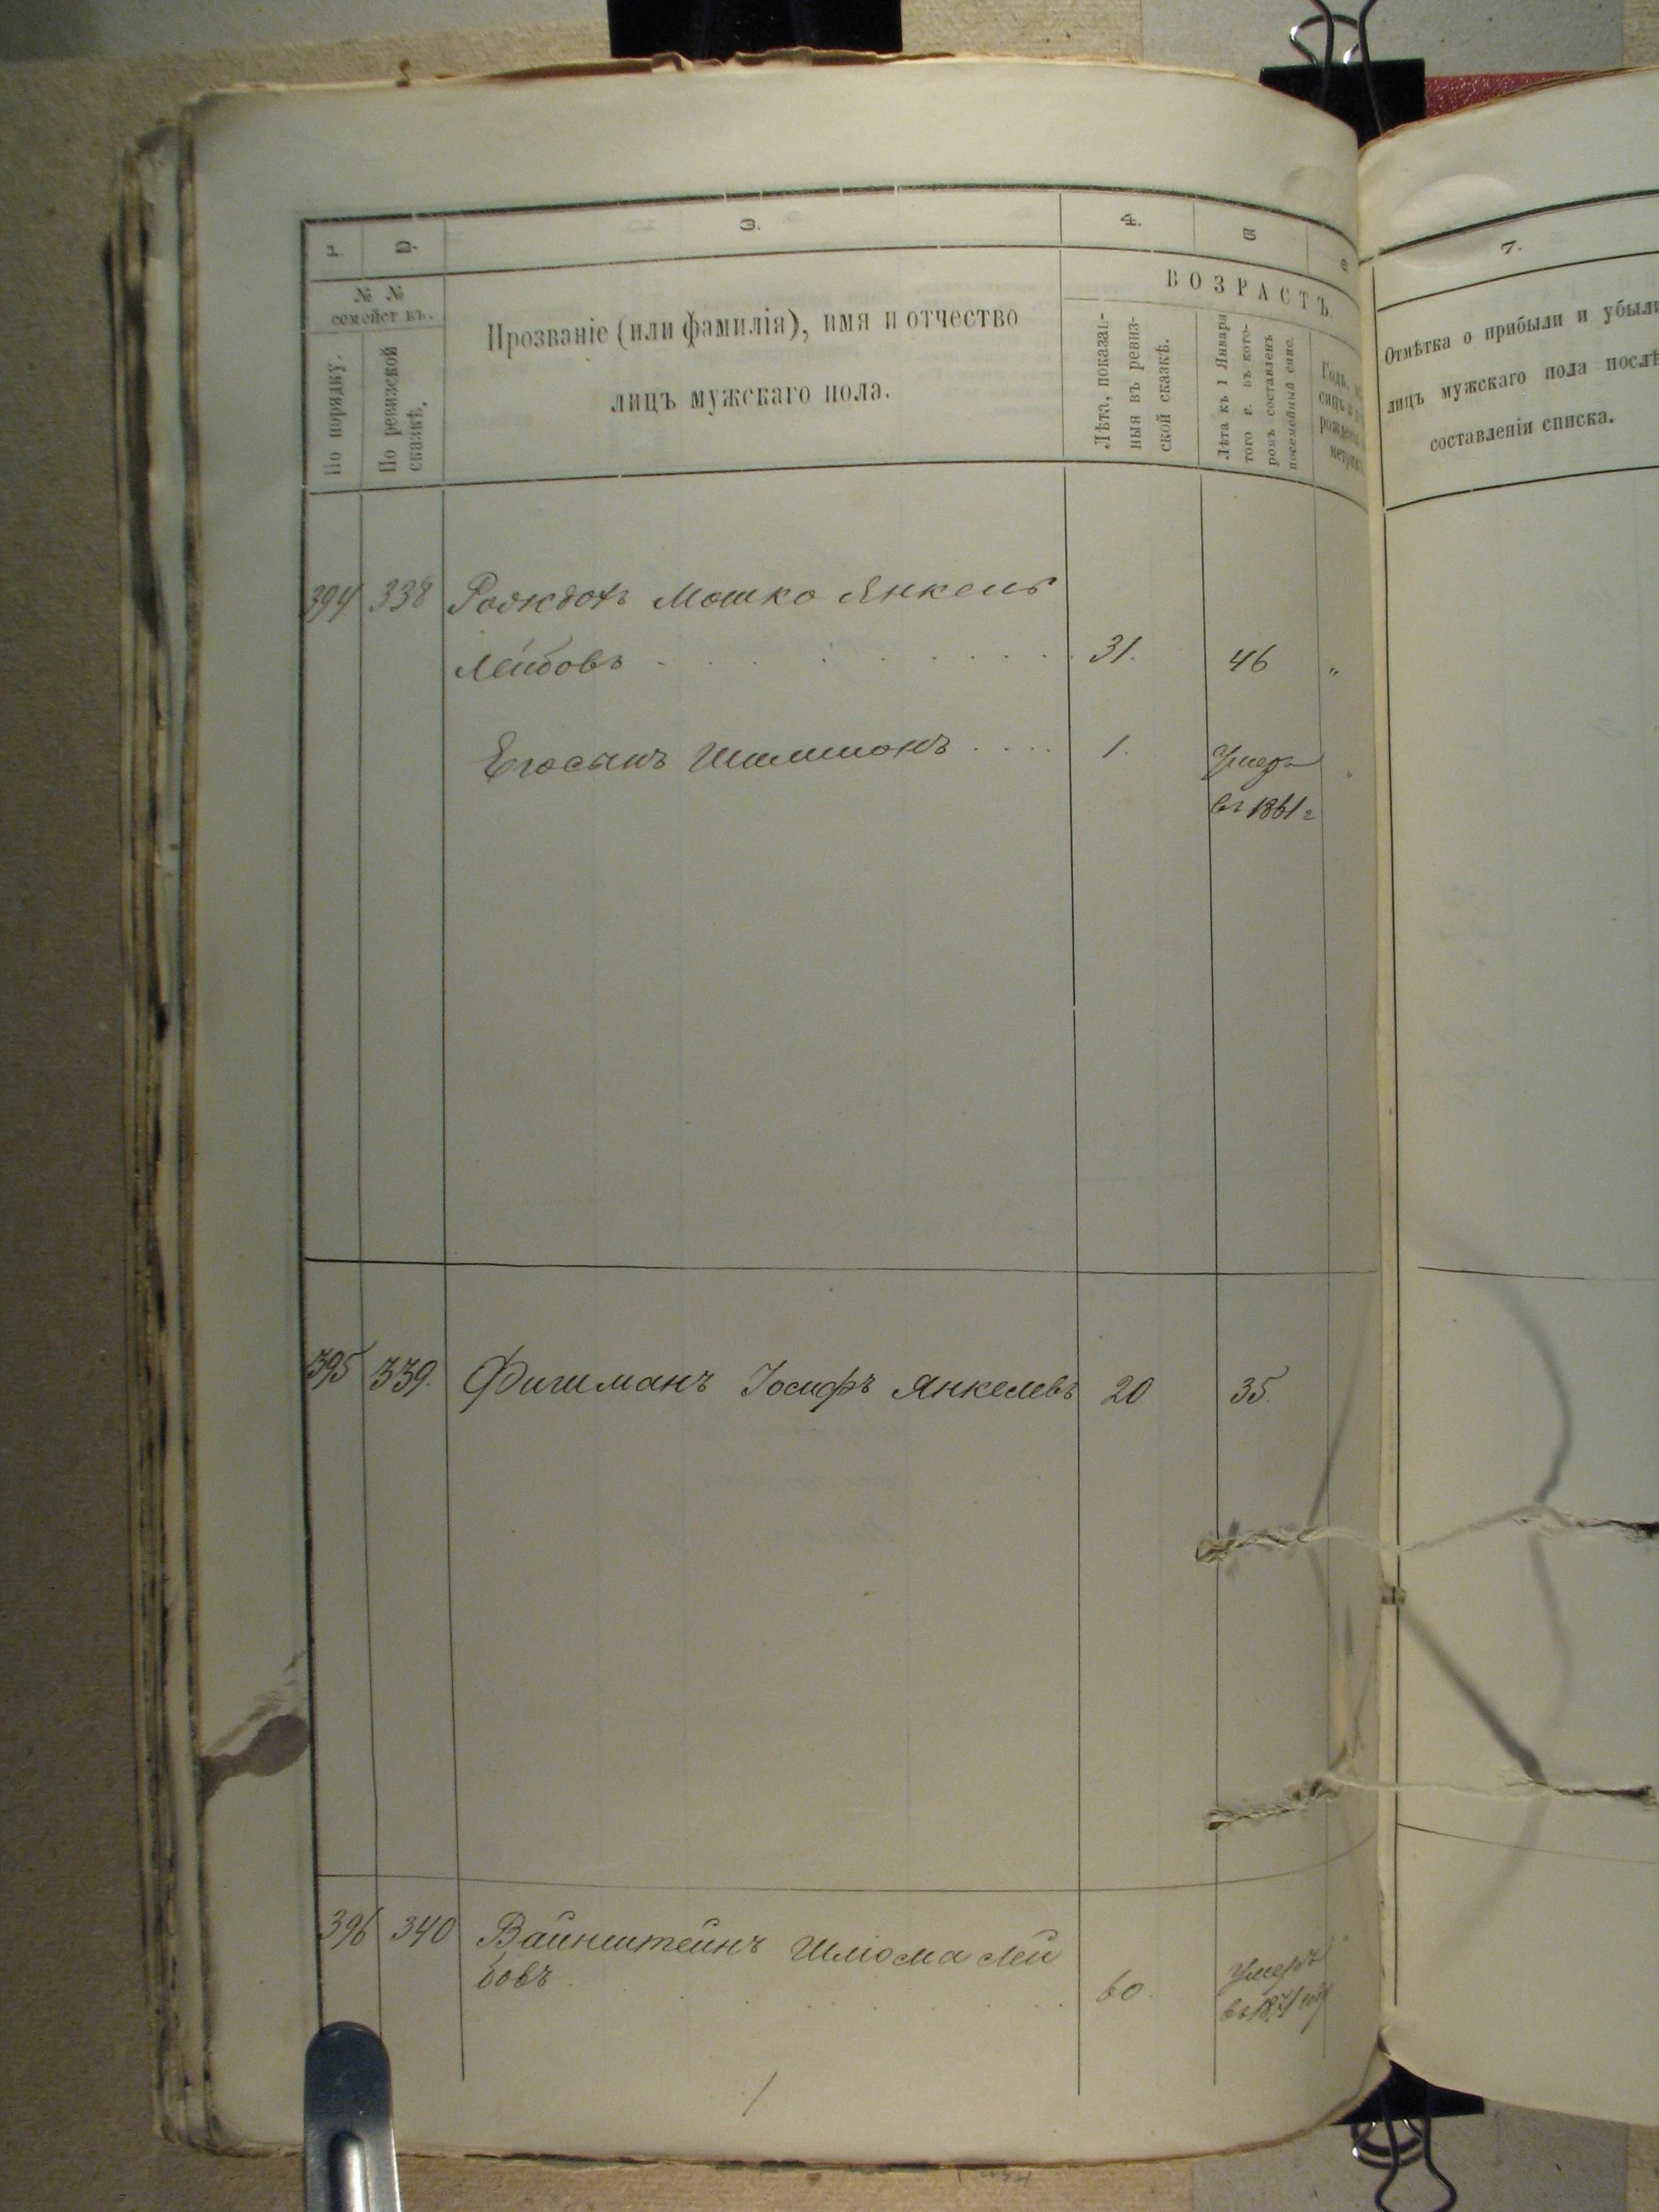 1. 2. 3. 4. 5 6
№ №
семействъ.
По порядку.
По ревизской
сказкѣ.
Прозваніе (или фамилія), имя и отчество
лицъ мужскаго пола.
ВОЗРАСТЪ.
Лѣта, показан-
ныя въ ревиз-
ской сказкѣ.
Лѣта къ 1 Января
того г. въ кото-
ромъ составленъ
посемейный спис.
Годъ,
рожденія
7.
Отмѣтка о прибыли и убыли
лицъ мужскаго пола послѣ
составленія списка.
394 338 Мошко Янкель
Лейбовъ 31. 46 „
Его сынъ Шимшонъ 1. Умеръ
въ 1861 г
395 339. Фишманъ Іосифъ Янкелевъ 20 35.
396 340 Вайнштейнъ Шлюма Лей
бовъ 60. Умеръ
въ 1871